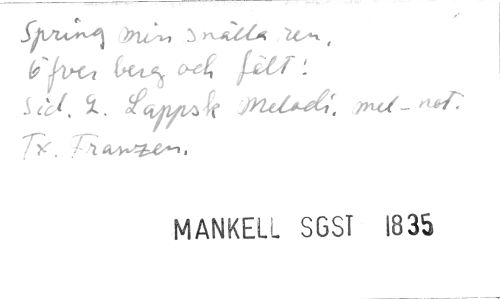 Spring min snälla ren,
öfver berg och fält!
Sid. 2. Lappsk Melodi. mel-not.
Tx. Franzen.
MANKELL SGST 1835